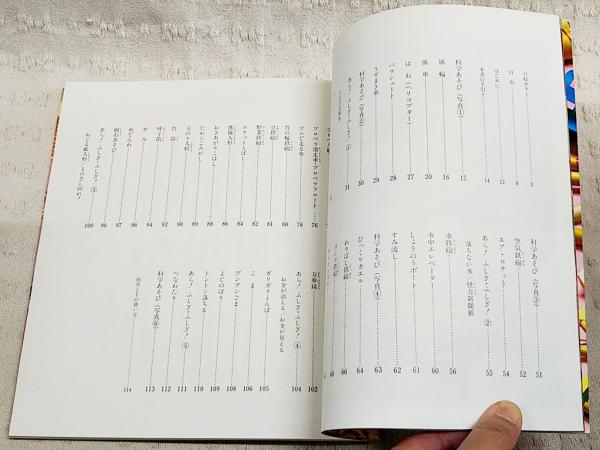 口絵カラー……3
目次……9
はじめに……12
本書の手引き……14
科学あそび（写真①）……15
風輪……16
風車……20
はね（ヘリコプター）……27
パラシュート……28
うずまき車……29
科学あそび（写真②）……30
あら！ふしぎ・ふしぎ！①……31
科学あそび（写真③）……51
エア・ロケット……52
空気鉄砲……54
あら！ふしぎ・ふしぎ！②……55
落ちない水／怪力新聞紙
水鉄砲……56
水中エレベーター……60
しょうのうボート……61
すみ流し……62
科学あそび（写真④）……63
びっくりカエル……64
わりばし鉄砲……66
プロペラ滑走車／プロペラフロート……76
ゴムで走る車……78
竹の輪鉄砲……80
豆鉄砲……81
野菜鉄砲……82
ロケットとばし……84
体操人形……86
おきあがりこぼし……88
たわらころがし……90
玉のり人形……91
竹笛……92
呼子笛……94
せみ……94
糸でんわ……96
磁石あそび……98
あら！ふしぎ・ふしぎ！③……100
おどる紙人形／
万華鏡……102
あら！ふしぎ・ふしぎ！④……104
お金が消える／お金が見える
ガリガリとんぼ……105
こま……106
ブンブンごま……108
よじのぼり……109
トントン落ちる……110
あら！ふしぎ・ふしぎ！⑤……111
つなわたり……112
科学あそび（写真⑥）……113
用具とその使い方……114